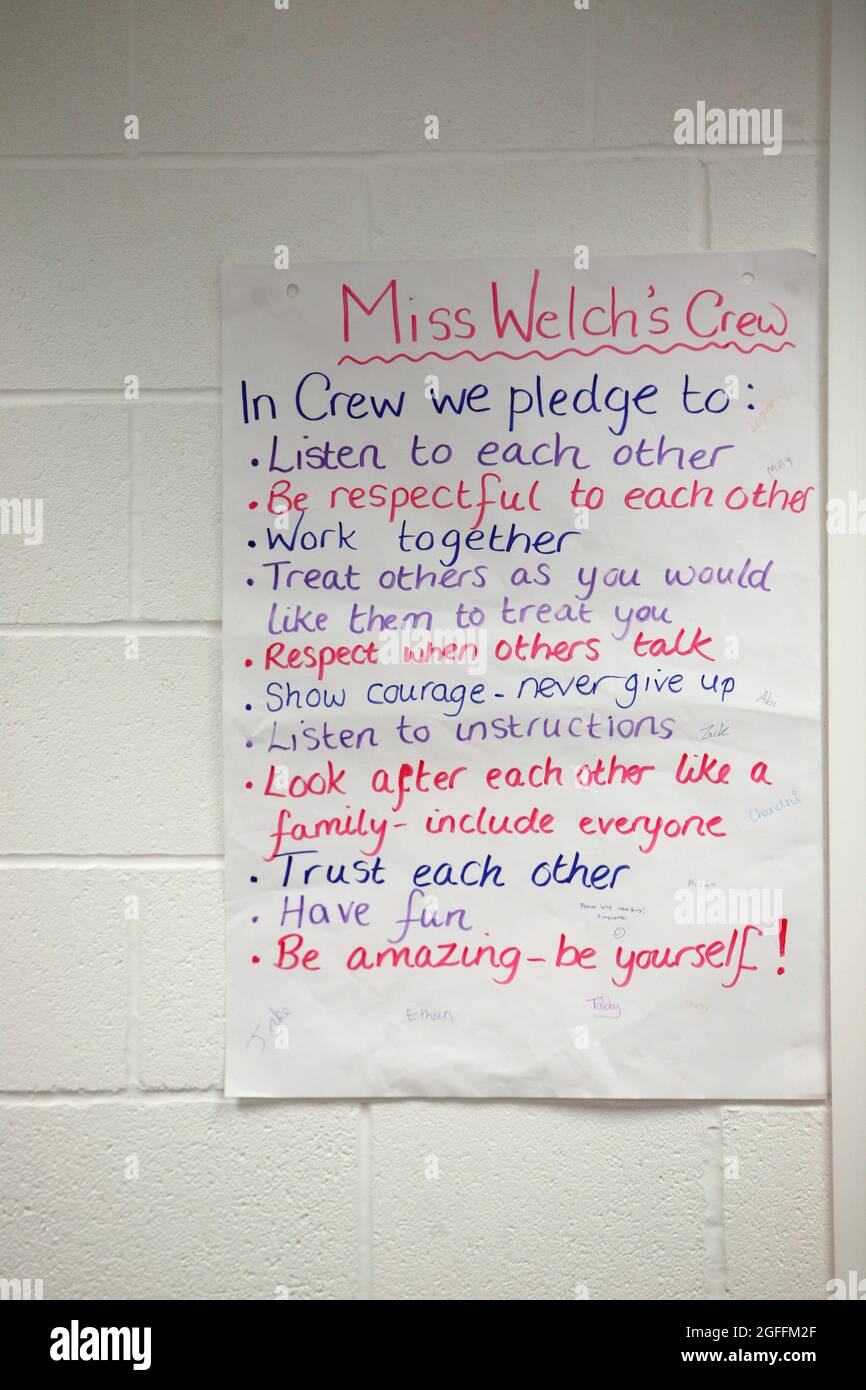 Miss Welch's Crew
In Crew we pledge to:
• Listen to each other
• Be respectful to each other
• Work together
• Treat others as you would
like them to treat you
• Respect when others talk
• Show courage - never give up
• Listen to instructions
• Look after each other like a
family - include everyone
• Trust each other
• Have fun
• Be amazing - be yourself!
Milly
Abi
Zack
Chandni
Ethan
Tabby
a
alamy
alamy
Image ID: 2GFFM2F
www.alamy.com